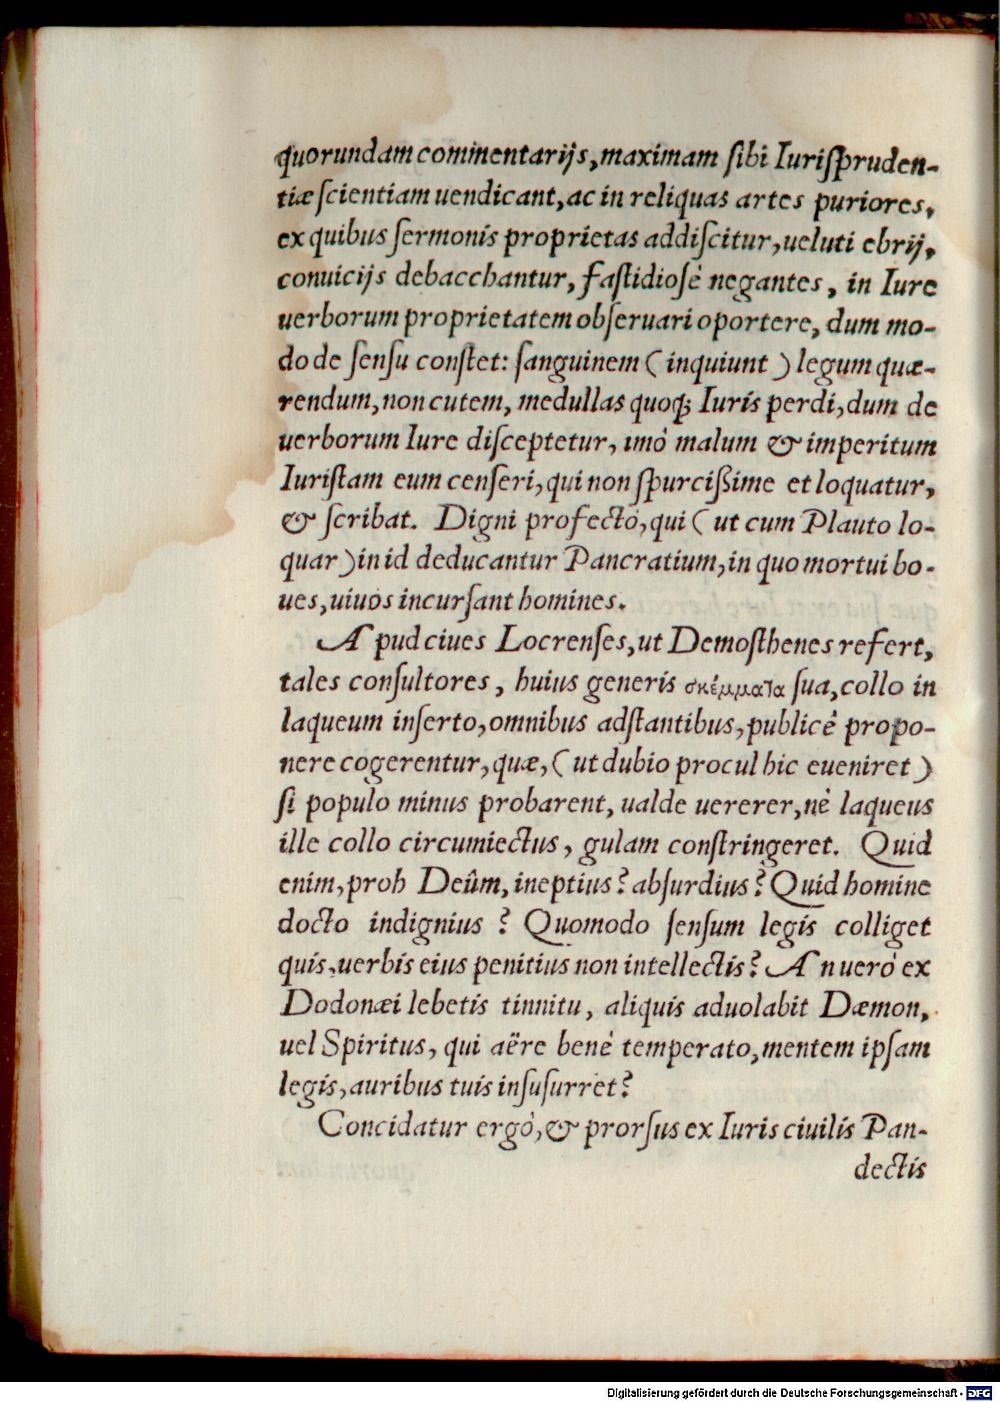 quorundam commentarijs, maximam ſibi Iuriſpruden-
tiæ ſcientiam uendicant, ac in reliquas artes puriores,
ex quibus ſermonis proprietas addiſcitur, ueluti ebrij,
conuicijs debacchantur, faſtidioſè negantes, in Iure
uerborum proprietatem obſeruari oportere, dum mo-
do de ſenſu conſtet: ſanguinem ( inquiunt ) legum quæ-
rendum, non cutem, medullas quoqꝫ Iuris perdi, dum de
uerborum Iure diſceptetur, imò malum & imperitum
Iuriſtam eum cenſeri, qui non ſpurciſſime et loquatur,
& ſcribat. Digni profectò, qui ( ut cum Plauto lo-
quar ) in id deducantur Pancratium, in quo mortui bo-
ues, uiuos incurſant homines.
Apud ciues Locrenſes, ut Demoſthenes refert,
tales conſultores, huius generis σκέμματα ſua, collo in
laqueum inſerto, omnibus adſtantibus, publicè propo-
nere cogerentur, quæ, ( ut dubio procul hic eueniret )
ſi populo minus probarent, ualde uererer, nè laqueus
ille collo circumiectus, gulam conſtringeret. Quid
enim, proh Deûm, ineptius? abſurdius? Quid homine
docto indignius ? Quomodo ſenſum legis colliget
quis, uerbis eius penitius non intellectis? An uerò ex
Dodonæi lebetis tinnitu, aliquis aduolabit Dæmon,
uel Spiritus, qui aëre benè temperato, mentem ipſam
legis, auribus tuis inſuſurret?
Concidatur ergò, & prorſus ex Iuris ciuilis Pan-
dectis
Digitalisierung gefördert durch die Deutsche Forschungsgemeinschaft - DFG